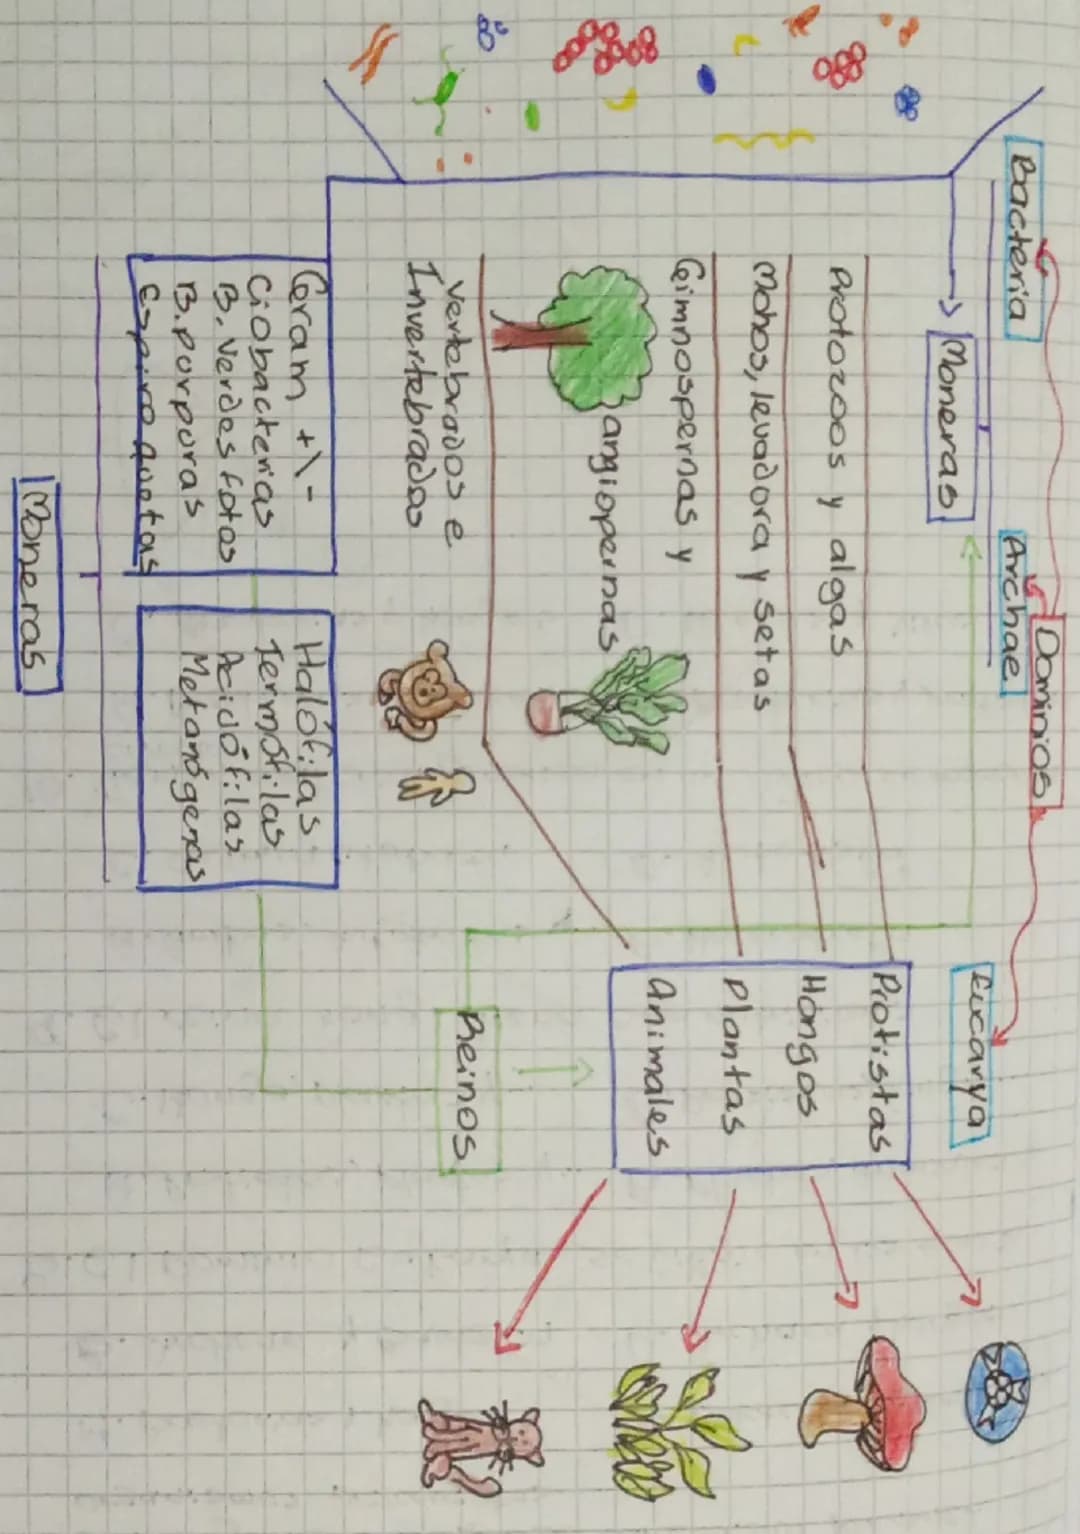 Dominios
Bacteria
Archae
Eucarya
Moneras
Protistas
Hongos
Plantas
Animales
Protozoos y algas
Mohos, levadora y setas
Gimnospernas y
angiopernas
Vertebrados e
Invertebrados
Reinos
Gram +\-
Ciobacterias
B. Verdes fotos
B. purpuras
Espiro quetas
Halófilas
Termófilas
Acidófilas
Metanógenas
Moneras